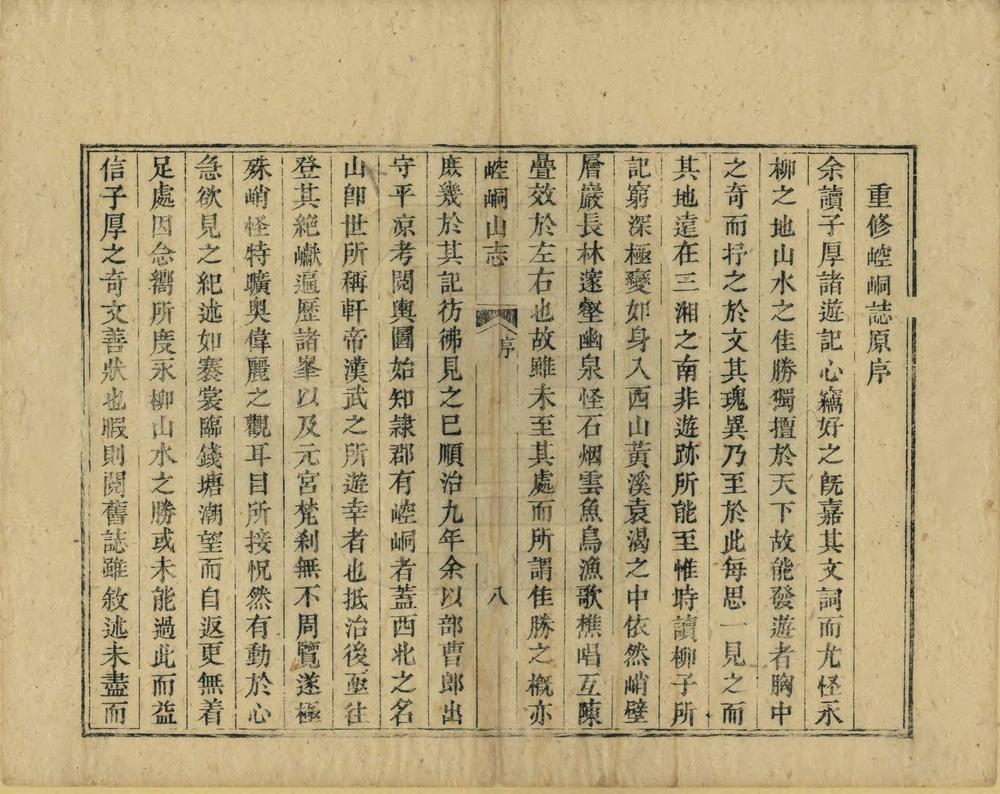 重修崆峒誌原序
余讀子厚諸遊記心竊好之旣嘉其文詞而尤怪永
柳之地山水之佳勝獨擅於天下故能發遊者胸中
之奇而抒之於文其瑰異乃至於此每思一見之而
其地遠在三湘之南非遊跡所能至惟時讀柳子所
記窮深極變如身入西山黃溪袁渴之中依然峭壁
層巖長林邃壑幽泉怪石烟雲魚鳥漁歌樵唱互陳
疊效於左右也故雖未至其處而所謂佳勝之槪亦
崆峒山志 序 八
庶幾於其記彷彿見之巳順治九年余以部曹郎出
守平凉考閱輿圖始知隷郡有崆峒者蓋西北之名
山卽世所稱軒帝漢武之所遊幸者也抵治後亟往
登其絶巘遍歷諸峯以及元宮梵刹無不周覽遂極
殊峭怪特曠奥偉麗之觀耳目所接怳然有動於心
急欲見之紀述如褰裳臨錢塘潮望而自返更無着
足處因念嚮所度永柳山水之勝或未能過此而益
信子厚之奇文善狀也暇則閱舊誌雖敘述未盡而